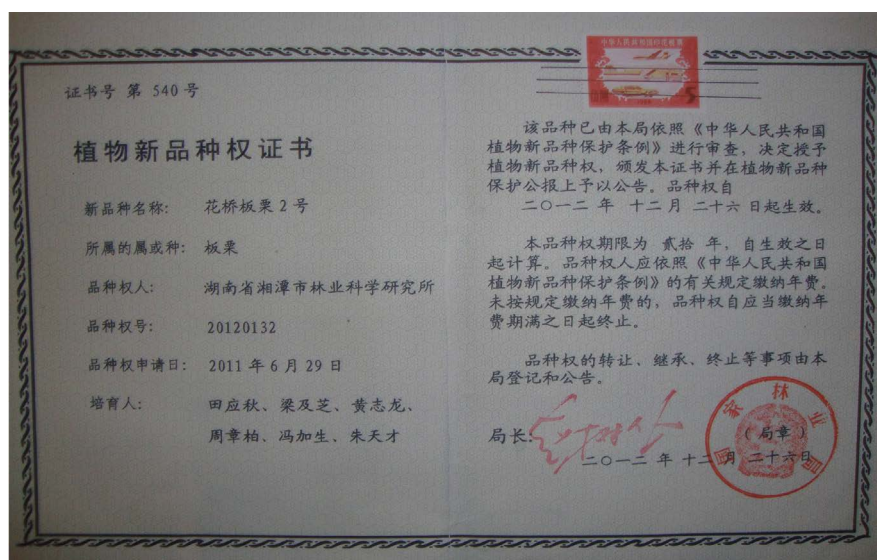 证书号 第 540 号
植物新品种权证书
新品种名称: 花桥板栗 2 号
所属的属或种: 板栗
品种权人: 湖南省湘潭市林业科学研究所
品种权号: 20120132
品种权申请日: 2011 年 6 月 29 日
培育人: 田应秋、梁及芝、黄志龙、
周章柏、冯加生、朱天才
5
该品种已由本局依照《中华人民共和国
植物新品种保护条例》进行审查,决定授予
植物新品种权,颁发本证书并在植物新品种
保护公报上予以公告。品种权自
二〇一二 年 十二 月 二十六 日起生效。
本品种权期限为 贰拾 年,自生效之日
起计算。品种权人应依照《中华人民共和国
植物新品种保护条例》的有关规定缴纳年费。
未按规定缴纳年费的,品种权自应当缴纳年
费期满之日起终止。
品种权的转让、继承、终止等事项由本
局登记和公告。
局长:
国家林业局
(局章)
二〇一二 年 十二 月 二十六日